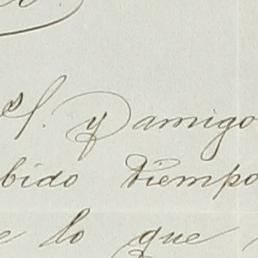 S. y D amigo
bido tiempo
e lo que